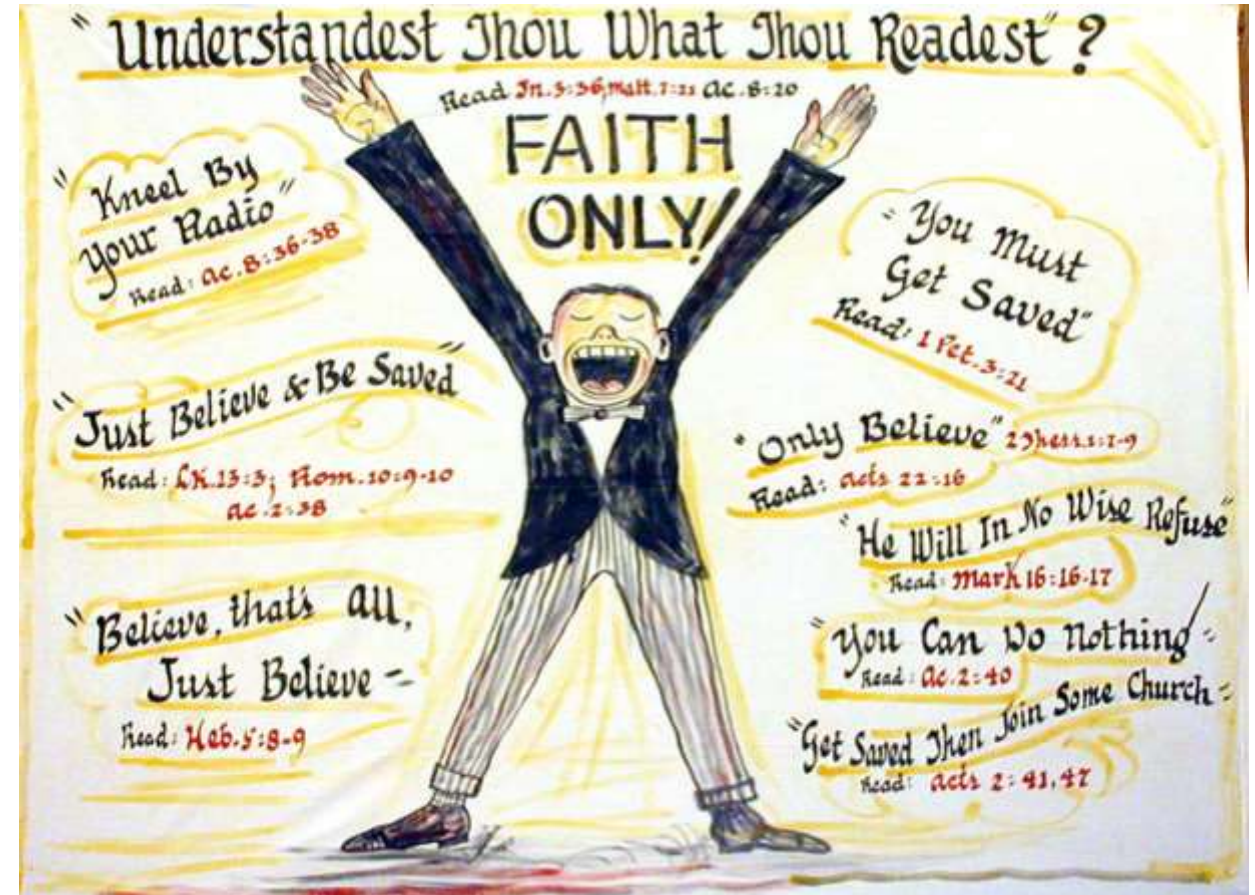 "Understandest Thou What Thou Readest"?
Read Jn. 3:36, Matt. 7:21 Ac. 8:20
FAITH
ONLY!
"Kneel By
Your Radio"
Read: Ac. 8:36-38
"Just Believe & Be Saved"
Read: Lk. 13:3; Rom. 10:9-10
Ac. 2:38
"Believe, that's all,
Just Believe"
Read: Heb. 5:8-9
"You Must
Get Saved"
Read: 1 Pet. 3:21
"Only Believe" 2 Thess. 1:7-9
Read: Acts 22:16
"He Will In No Wise Refuse"
Read: Mark 16:16-17
"You Can Do Nothing"
Read: Ac. 2:40
"Get Saved Then Join Some Church"
Read: Acts 2:41,47